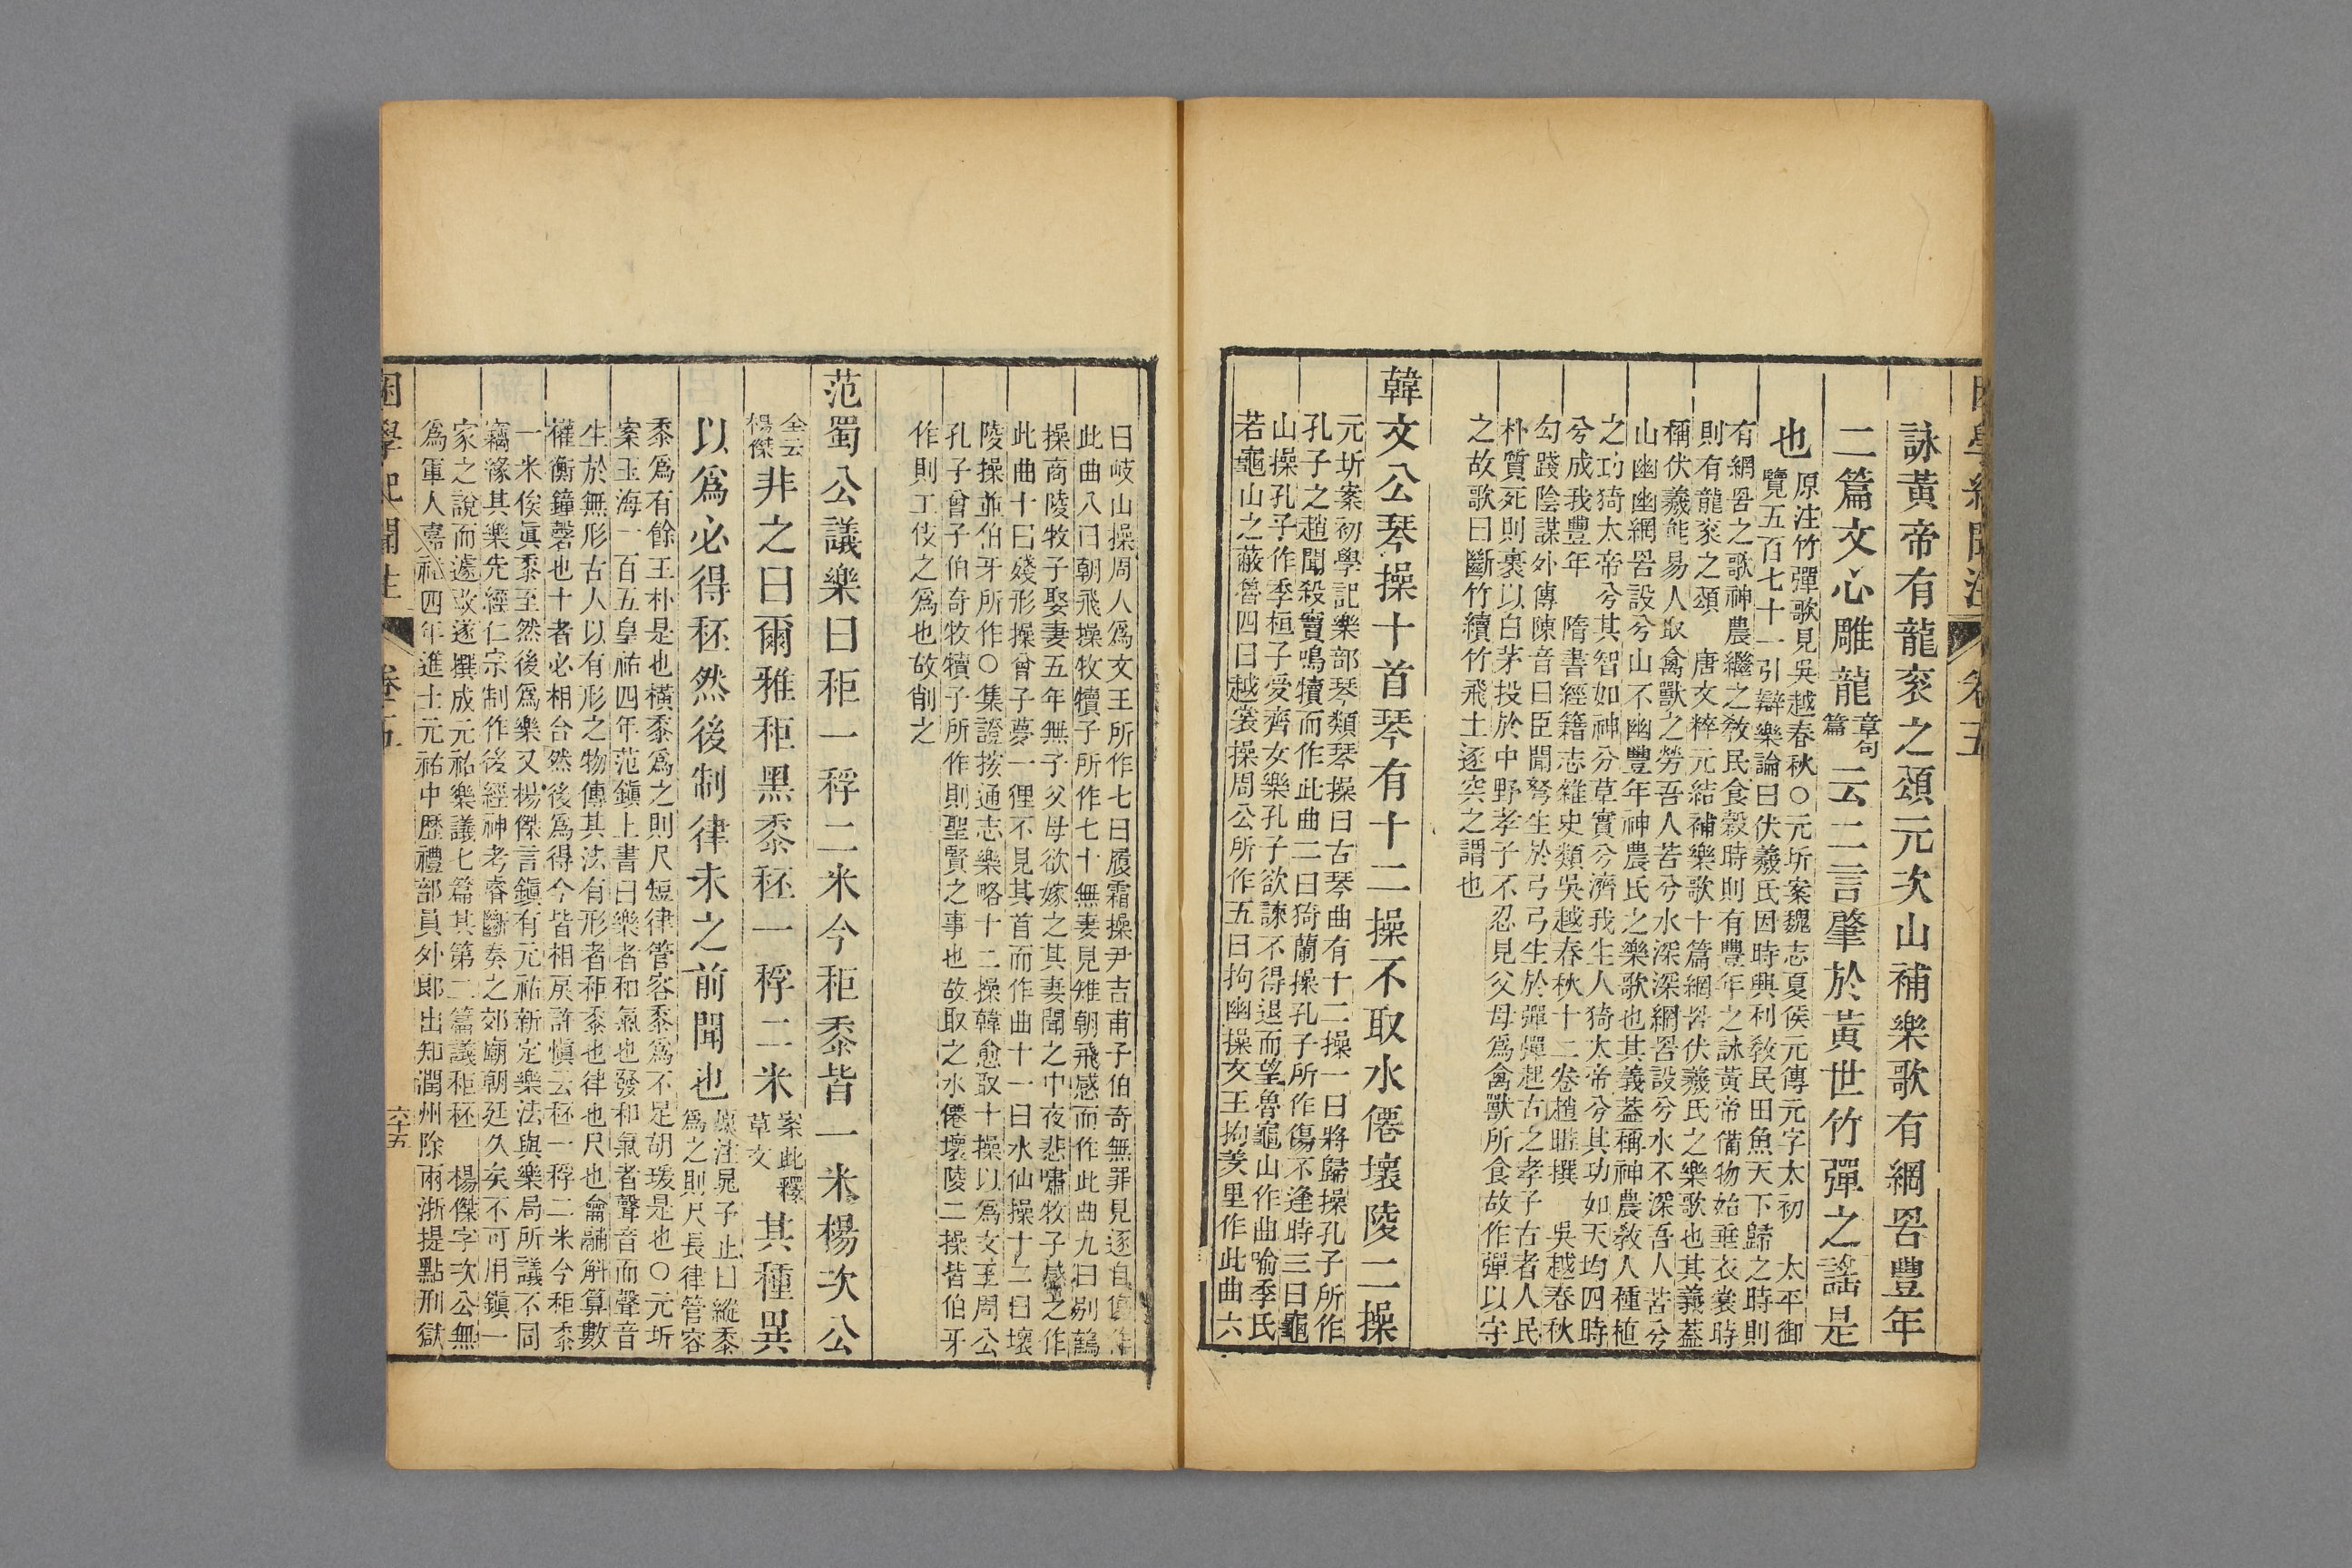 詠黃帝有龍衮之頌元次山補樂歌有網罟豐年
二篇文心雕龍章句篇云二言肇於黃世竹彈之謠是
也原注竹彈歌見吳越春秋○元圻案魏志夏侯元傳元字太初 太平御
覽五百七十一引辯樂論曰伏羲氏因時興利教民田魚天下歸之時則
有網罟之歌神農繼之教民食穀時則有豐年之詠黃帝備物始垂衣裳時
則有龍衮之頌 唐文粹元結補樂歌十篇網罟伏羲氏之樂歌也其義蓋
稱伏羲能易人取禽獸之勞吾人苦兮水深深網罟設兮水不深吾人苦兮
山幽幽網罟設兮山不幽豐年神農氏之樂歌也其義蓋稱神農教人種植
之功猗太帝兮其智如神兮草實兮濟我生人猗太帝兮其功如天均四時
兮成我豐年 隋書經籍志雜史類吳越春秋十二卷趙曄撰 吳越春秋
勾踐陰謀外傳陳音曰臣聞弩生於弓弓生於彈彈起古之孝子古者人民
朴質死則裹以白茅投於中野孝子不忍見父母為禽獸所食故作彈以守
之故歌曰斷竹續竹飛土逐宍之謂也
韓文公琴操十首琴有十二操不取水僊壞陵二操
元圻案初學記樂部琴類琴操曰古琴曲有十二操一曰將歸操孔子所作
孔子之趙聞殺竇鳴犢而作此曲二曰猗蘭操孔子所作傷不逢時三曰龜
山操孔子作季桓子受齊女樂孔子欲諫不得退而望魯龜山作曲喻季氏
若龜山之蔽魯四曰越裳操周公所作五曰拘幽操文王拘羑里作此曲六
曰岐山操周人為文王所作七曰履霜操尹吉甫子伯奇無罪見逐自傷作
此曲八曰朝飛操牧犢子所作七十無妻見雉朝飛感而作此曲九曰別鶴
操商陵牧子娶妻五年無子父母欲嫁之其妻聞之中夜悲嘯牧子感之作
此曲十曰殘形操曾子夢一狸不見其首而作曲十一曰水仙操十二曰壞
陵操並伯牙所作○集證按通志樂略十二操韓愈取十操以為文王周公
孔子曾子伯奇牧犢子所作則聖賢之事也故取之水僊壞陵二操皆伯牙
作則工伎之為也故削之
范蜀公議樂曰秬一稃二米今秬黍皆一米楊次公
全云楊傑非之曰爾雅秬黑黍秠一稃二米案此釋草文其種異
以為必得秠然後制律未之前聞也原注晁子止曰縱黍為之則尺長律管容
黍為有餘王朴是也橫黍為之則尺短律管容黍為不足胡瑗是也○元圻
案玉海一百五皇祐四年范鎮上書曰樂者和氣也發和氣者聲音而聲音
生於無形古人以有形之物傳其法有形者秬黍也律也尺也龠鬴斛算數
權衡鐘磬也十者必相合然後為得今皆相戾許慎云秠一稃二米今秬黍
一米俟真黍至然後為樂又楊傑言鎮有元祐新定樂法與樂局所議不同
竊緣其樂先經仁宗制作後經神考睿斷奏之郊廟朝廷久矣不可用鎮一
家之說而遽改遂撰成元祐樂議七篇其第二篇議秬秠 楊傑字次公無
為軍人嘉祐四年進士元祐中歷禮部員外郎出知潤州除兩浙提點刑獄
困學紀聞注 卷五 六十五